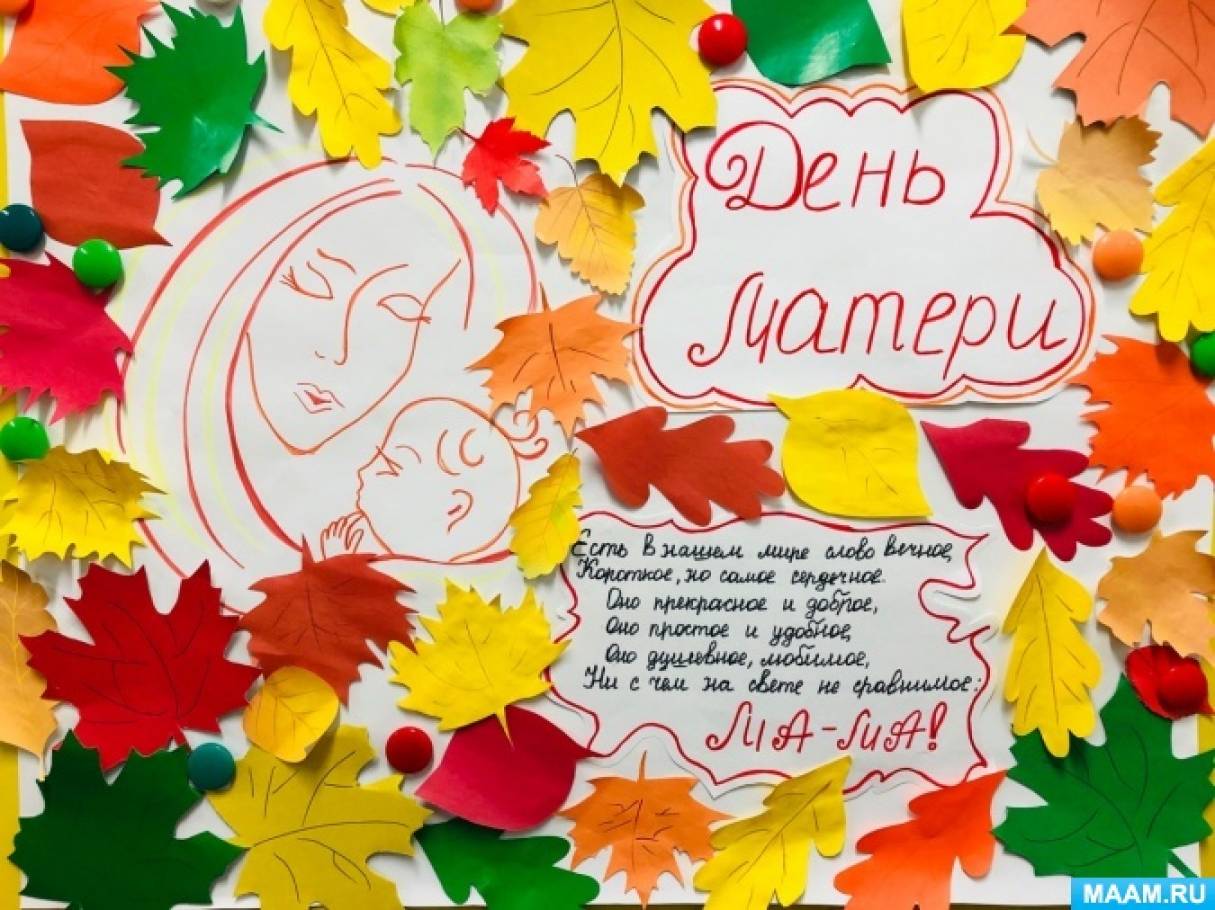 День
Матери
Есть в нашем мире слово вечное,
Короткое, но самое сердечное.
Оно прекрасное и доброе,
Оно простое и удобное,
Оно душевное, любимое,
Ни с чем на свете не сравнимое:
МА-МА!
MAAM.RU